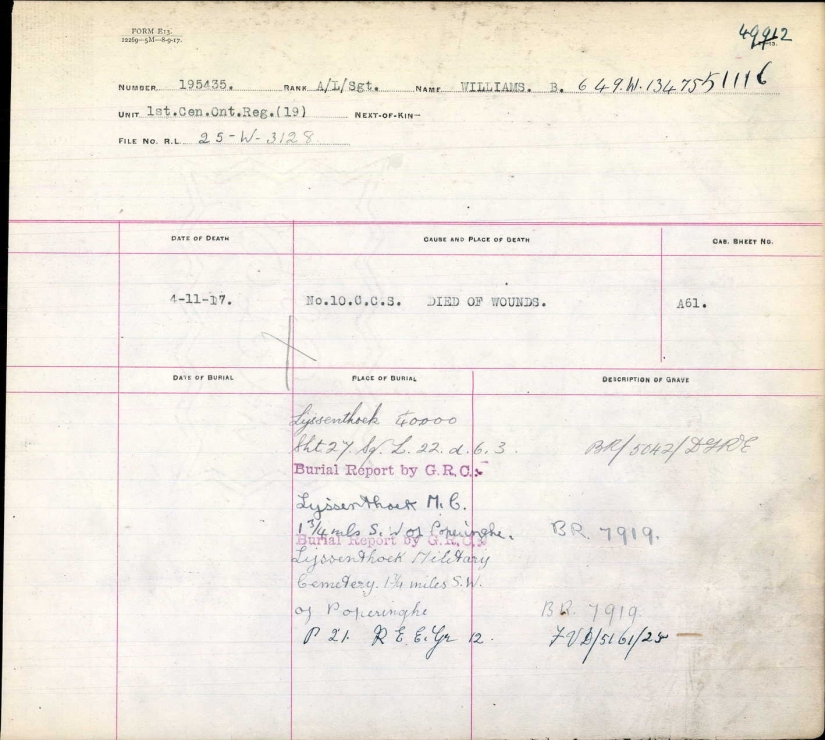 FORM E13.
12269—5M—8-9-17.
49912
NUMBER 195435. RANK A/L/Sgt. NAME WILLIAMS. B. 649.W.13475 51116
UNIT 1st.Cen.Ont.Reg.(19) NEXT-OF-KIN—
FILE NO. R.L. 25-W-3128
DATE OF DEATH CAUSE AND PLACE OF DEATH CAS. SHEET NO.
4-11-17. No.10.C.C.S. DIED OF WOUNDS. A61.
DATE OF BURIAL PLACE OF BURIAL DESCRIPTION OF GRAVE
Lyssenthoek 40000
Sht. 27. Sq. L. 22. d. 6. 3. BR/5042/DGRE
Burial Report by G.R.C.
Lyssenthoek M.C.
1 3/4 mls S.W of Poperinghe. BR. 7919.
Burial Report by G.R.C.
Lyssenthoek Military
Cemetery. 1 3/4 miles S.W.
of Poperinghe BR. 7919.
P 21. R E E. Gr 12. /5161/25